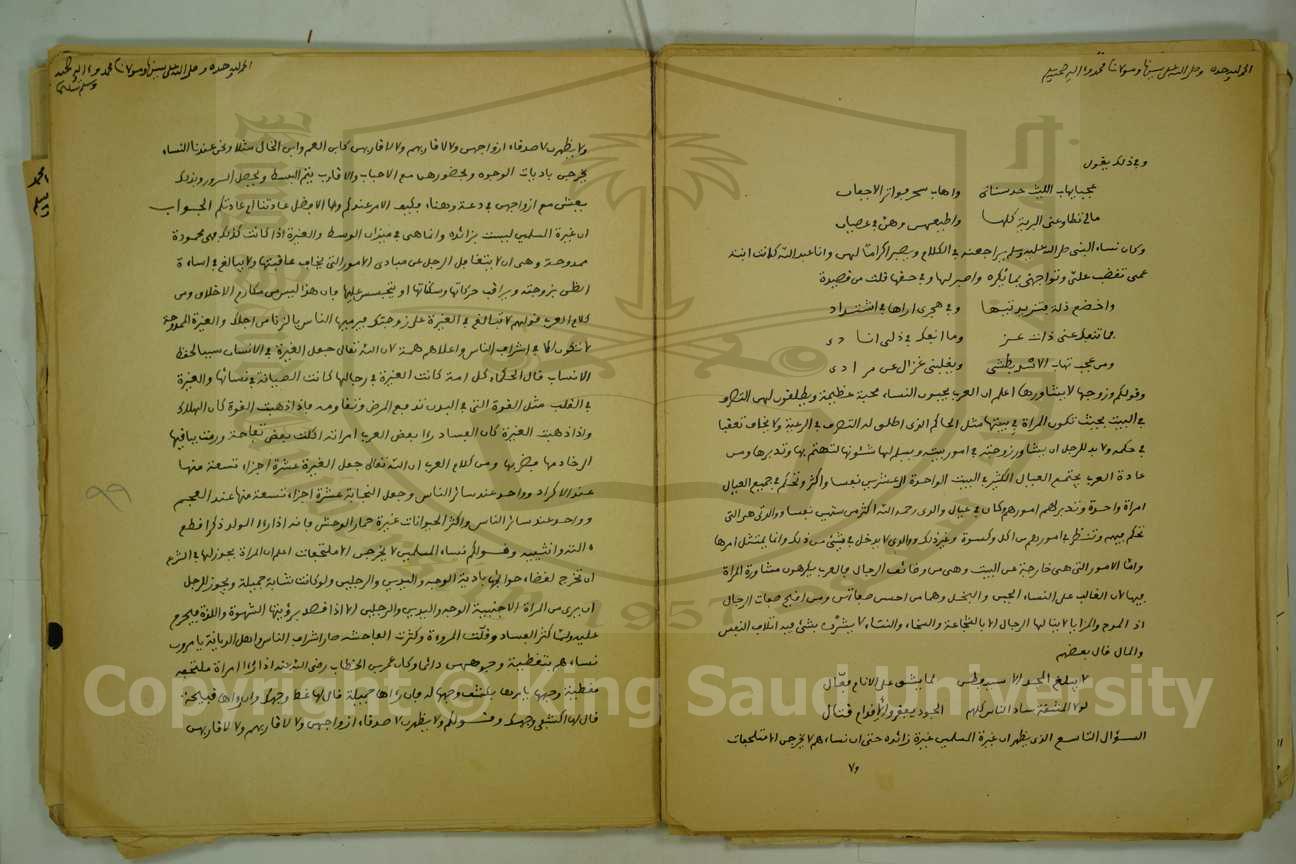 الحمد لله وحده وصلى الله على سيدنا ومولانا محمد وءاله وصحبه وسلم
وفي ذلك يقول
عجبا يهاب الليث حد سناني واهاب سحر فواتر الاجفان
مالي تطاوعني البرية كلها واطيعهن وهن في عصيان
وكان نساء النبي صلى الله عليه وسلم يراجعنه في الكلام ويصبر اكراما لهن وانا عبد الله كانت ابنة
عمي تغضب علي وتواجهني بما نكره واصبر لها وفي حقها قلت من قصيدة
واخضع ذلة فتزيد تيها وفي هجري اراها في اشتداد
فما تنفك عني ذات عز وما انفك في ذلي انادي
ومن عجب تهاب الاسد بطشي ويغلبني غزال عن مرادي
وقولكم وزوجها لا يشاورها اعلم ان العرب يحبون النساء محبة عظيمة ويطلقون لهن التصرف
في البيت بحيث تكون المراة في بيتها مثل الحاكم الذي اطلق له التصرف في الرعية ولا يخاف تعقبا
في حكمه ولا بد للرجل ان يشاور زوجته في امور بيته ويسلم لها شئونها لتهتم بها وتدبرها ومن
عادة العرب يجتمع العيال الكثير في البيت الواحد العشرين نفسا واكثر وتحكم في جميع العيال
امراة واحدة وتدبر لهم امورهم وكان في عيال والدي رحمه الله اكثر من ستين نفسا ووالدتي هي التي
تحكم فيهم وتنظر في امورهم من اكل وكسوة وغير ذلك ووالدي لا يدخل في شيء من ذلك وانما يمتثل امرها
واما الامور التي هي خارجة عن البيت وهي من وظائف الرجال فالعرب يكرهون مشاورة المراة
فيها لان الغالب على النساء الجبن والبخل وهما من احسن صفاتهن ومن اقبح صفات الرجال
اذ المدح والمزايا لا ينالها الرجال الا بالشجاعة والسخاء والنساء لا يشرن بشيء فيه اتلاف النفس
والمال قال بعضهم
لا يبلغ المجد الا سيد فطن لما يشق على الانام فعال
لولا المشقة ساد الناس كلهم الجود يفقر والاقدام قتال
السؤال التاسع الذي يظهر ان غيرة المسلمين غيرة زائده حتى ان نساءهم لا يخرجن الا متلحفات
ولا
الحمد لله وحده وصلى الله على سيدنا ومولانا محمد وءاله وصحبه
وسلم تسليما
ولا يظهرن لاصدقاء ازواجهن ولا لاقاربهم ولا لاقاربهن كابن العم وابن الخال مثلا ونحن عندنا النساء
يخرجن باديات الوجوه وبحضورهن مع الاحباب والاقارب يتم البسط ويحصل السرور وبذلك
يعشن مع ازواجهن في دعة وهناء فكيف الامر عندكم وما الافضل عادتنا او عادتكم الجواب
ان غيرة المسلمين ليست بزائده وانما هي في ميزان الوسط والغيرة اذا كانت كذلك فهي محمودة
ممدوحة وهي ان لا يتغافل الرجل عن مبادي الامور التي يخاف عاقبتها ولا يبالغ في اساءة
الظن بزوجته ويراقب حركاتها وسكناتها او يتجسس عليها فان هذا ليس من مكارم الاخلاق ومن
كلام العرب قولهم لا تبالغ في الغيرة على زوجتك فيرميها الناس بالزنا من اجلك والغيرة الممدوحة
لا تكون الا في اشراف الناس واعلاهم همة لان الله تعالى جعل الغيرة في الانسان سببا لحفظ
الانساب قال الحكماء كل امة كانت الغيرة في رجالها كانت الصيانة في نسائها والغيرة
في القلب مثل القوة التي في البدن تدفع المرض وتقاومه فاذا ذهبت القوة كان الهلاك
واذا ذهبت الغيرة كان الفساد رءا بعض العرب امراته اكلت بعض تفاحة ورمت باقيها
الى خادمها فضربها ومن كلام العرب ان الله تعالى جعل الغيرة عشرة اجزاء تسعة منها
عند الاكراد وواحد عند سائر الناس وجعل النجابة عشرة اجزاء تسعة منها عند العجم
وواحد عند سائر الناس واكثر الحيوانات غيرة حمار الوحش فانه اذا رءا الولد ذكرا قطع
ءالته وانثييه وقولكم نساء المسلمين لا يخرجن الا متلحفات اعلم ان المراة يجوز لها في الشرع
ان تخرج لقضاء حوائجها بادية الوجه واليدين والرجلين ولو كانت شابة جميلة ويجوز للرجل
ان يرى من المراة الاجنبية الوجه واليدين والرجلين الا اذا قصد برؤيتها الشهوة واللذة فيحرم
عليه ولما كثر الفساد وقلت المروءة وكثرت الفاحشة صار اشراف الناس واهل الديانة يامرون
نساءهم بتغطية وجوههن دائما وكان عمر بن الخطاب رضي الله عنه اذا رءا امراة ملتحفة
مغطية وجهها يامرها بكشف وجهها له فان رءاها جميلة قال لها غط وجهك وان رءاها قبيحة
قال لها اكشفي وجهك وقولكم ولا يظهرن لاصدقاء ازواجهن ولا لاقاربهم ولا لاقاربهن
99
1957
Copyright © King Saud University